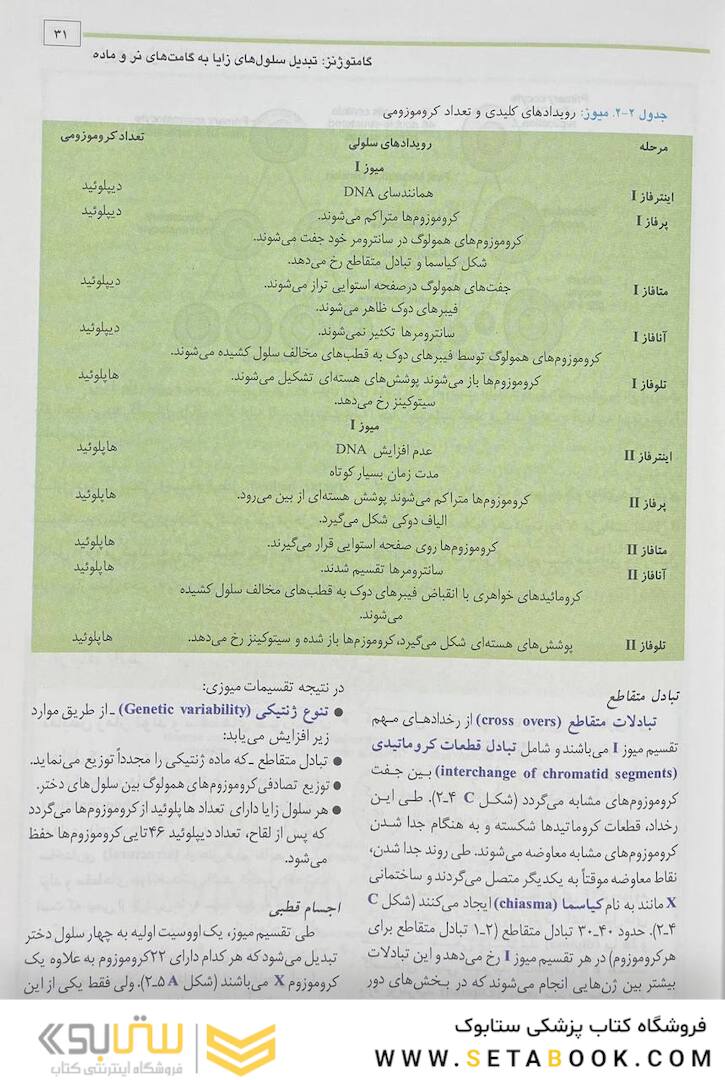 ۳۱
گامتوژنز: تبدیل سلول‌های زایا به گامت‌های نر و ماده
جدول ۲-۲. میوز: رویدادهای کلیدی و تعداد کروموزومی
مرحله رویدادهای سلولی تعداد کروموزومی
میوز I
اینترفاز I همانندسای DNA دیپلوئید
پرفاز I کروموزوم‌ها متراکم می‌شوند. دیپلوئید
کروموزوم‌های همولوگ در سانترومر خود جفت می‌شوند.
شکل کیاسما و تبادل متقاطع رخ می‌دهد.
متافاز I جفت‌های همولوگ درصفحه استوایی تراز می‌شوند. دیپلوئید
فیبرهای دوک ظاهر می‌شوند.
آنافاز I سانترومرها تکثیر نمی‌شوند. دیپلوئید
کروموزوم‌های همولوگ توسط فیبرهای دوک به قطب‌های مخالف سلول کشیده می‌شوند.
تلوفاز I کروموزوم‌ها باز می‌شوند پوشش‌های هسته‌ای تشکیل می‌شوند. هاپلوئید
سیتوکینز رخ می‌دهد.
میوز I
اینترفاز II عدم افزایش DNA هاپلوئید
مدت زمان بسیار کوتاه
پرفاز II کروموزوم‌ها متراکم می‌شوند پوشش هسته‌ای از بین می‌رود. هاپلوئید
الیاف دوکی شکل می‌گیرد.
متافاز II کروموزوم‌ها روی صفحه استوایی قرار می‌گیرند. هاپلوئید
آنافاز II سانترومرها تقسیم شدند. هاپلوئید
کرومائیدهای خواهری با انقباض فیبرهای دوک به قطب‌های مخالف سلول کشیده
می‌شوند.
تلوفاز II پوشش‌های هسته‌ای شکل می‌گیرد، کروموزم‌ها باز شده و سیتوکینز رخ می‌دهد. هاپلوئید
تبادل متقاطع
تبادلات متقاطع (cross overs) از رخدادهای مهم
تقسیم میوز I می‌باشند و شامل تبادل قطعات کروماتیدی
(interchange of chromatid segments) بین جفت
کروموزوم‌های مشابه می‌گردد (شکل C ۴-۲). طی این
رخداد، قطعات کروماتیدها شکسته و به هنگام جدا شدن
کروموزوم‌های مشابه معاوضه می‌شوند. طی روند جدا شدن،
نقاط معاوضه موقتاً به یکدیگر متصل می‌گردند و ساختمانی
X مانند به نام کیاسما (chiasma) ایجاد می‌کنند (شکل C
۴-۲). حدود ۴۰-۳۰ تبادل متقاطع (۲-۱ تبادل متقاطع برای
هر کروموزوم) در هر تقسیم میوز I رخ می‌دهد و این تبادلات
بیشتر بین ژن‌هایی انجام می‌شوند که در بخش‌های دور
در نتیجه تقسیمات میوزی:
● تنوع ژنتیکی (Genetic variability) ـ از طریق موارد
زیر افزایش می‌یابد:
● تبادل متقاطع ـ که ماده ژنتیکی را مجدداً توزیع می‌نماید.
● توزیع تصادفی کروموزوم‌های همولوگ بین سلول‌های دختر.
● هر سلول زایا دارای تعداد هاپلوئید از کروموزوم‌ها می‌گردد
که پس از لقاح، تعداد دیپلوئید ۴۶تایی کروموزوم‌ها حفظ
می‌شود.
اجسام قطبی
طی تقسیم میوز، یک اووسیت اولیه به چهار سلول دختر
تبدیل می‌شود که هر کدام دارای ۲۲کروموزوم به علاوه یک
کروموزوم X می‌باشند (شکل A ۵-۲). ولی فقط یکی از این
فروشگاه کتاب پزشکی ستابوک
WWW.SETABOOK.COM
ستابوک
فروشگاه اینترنتی کتاب